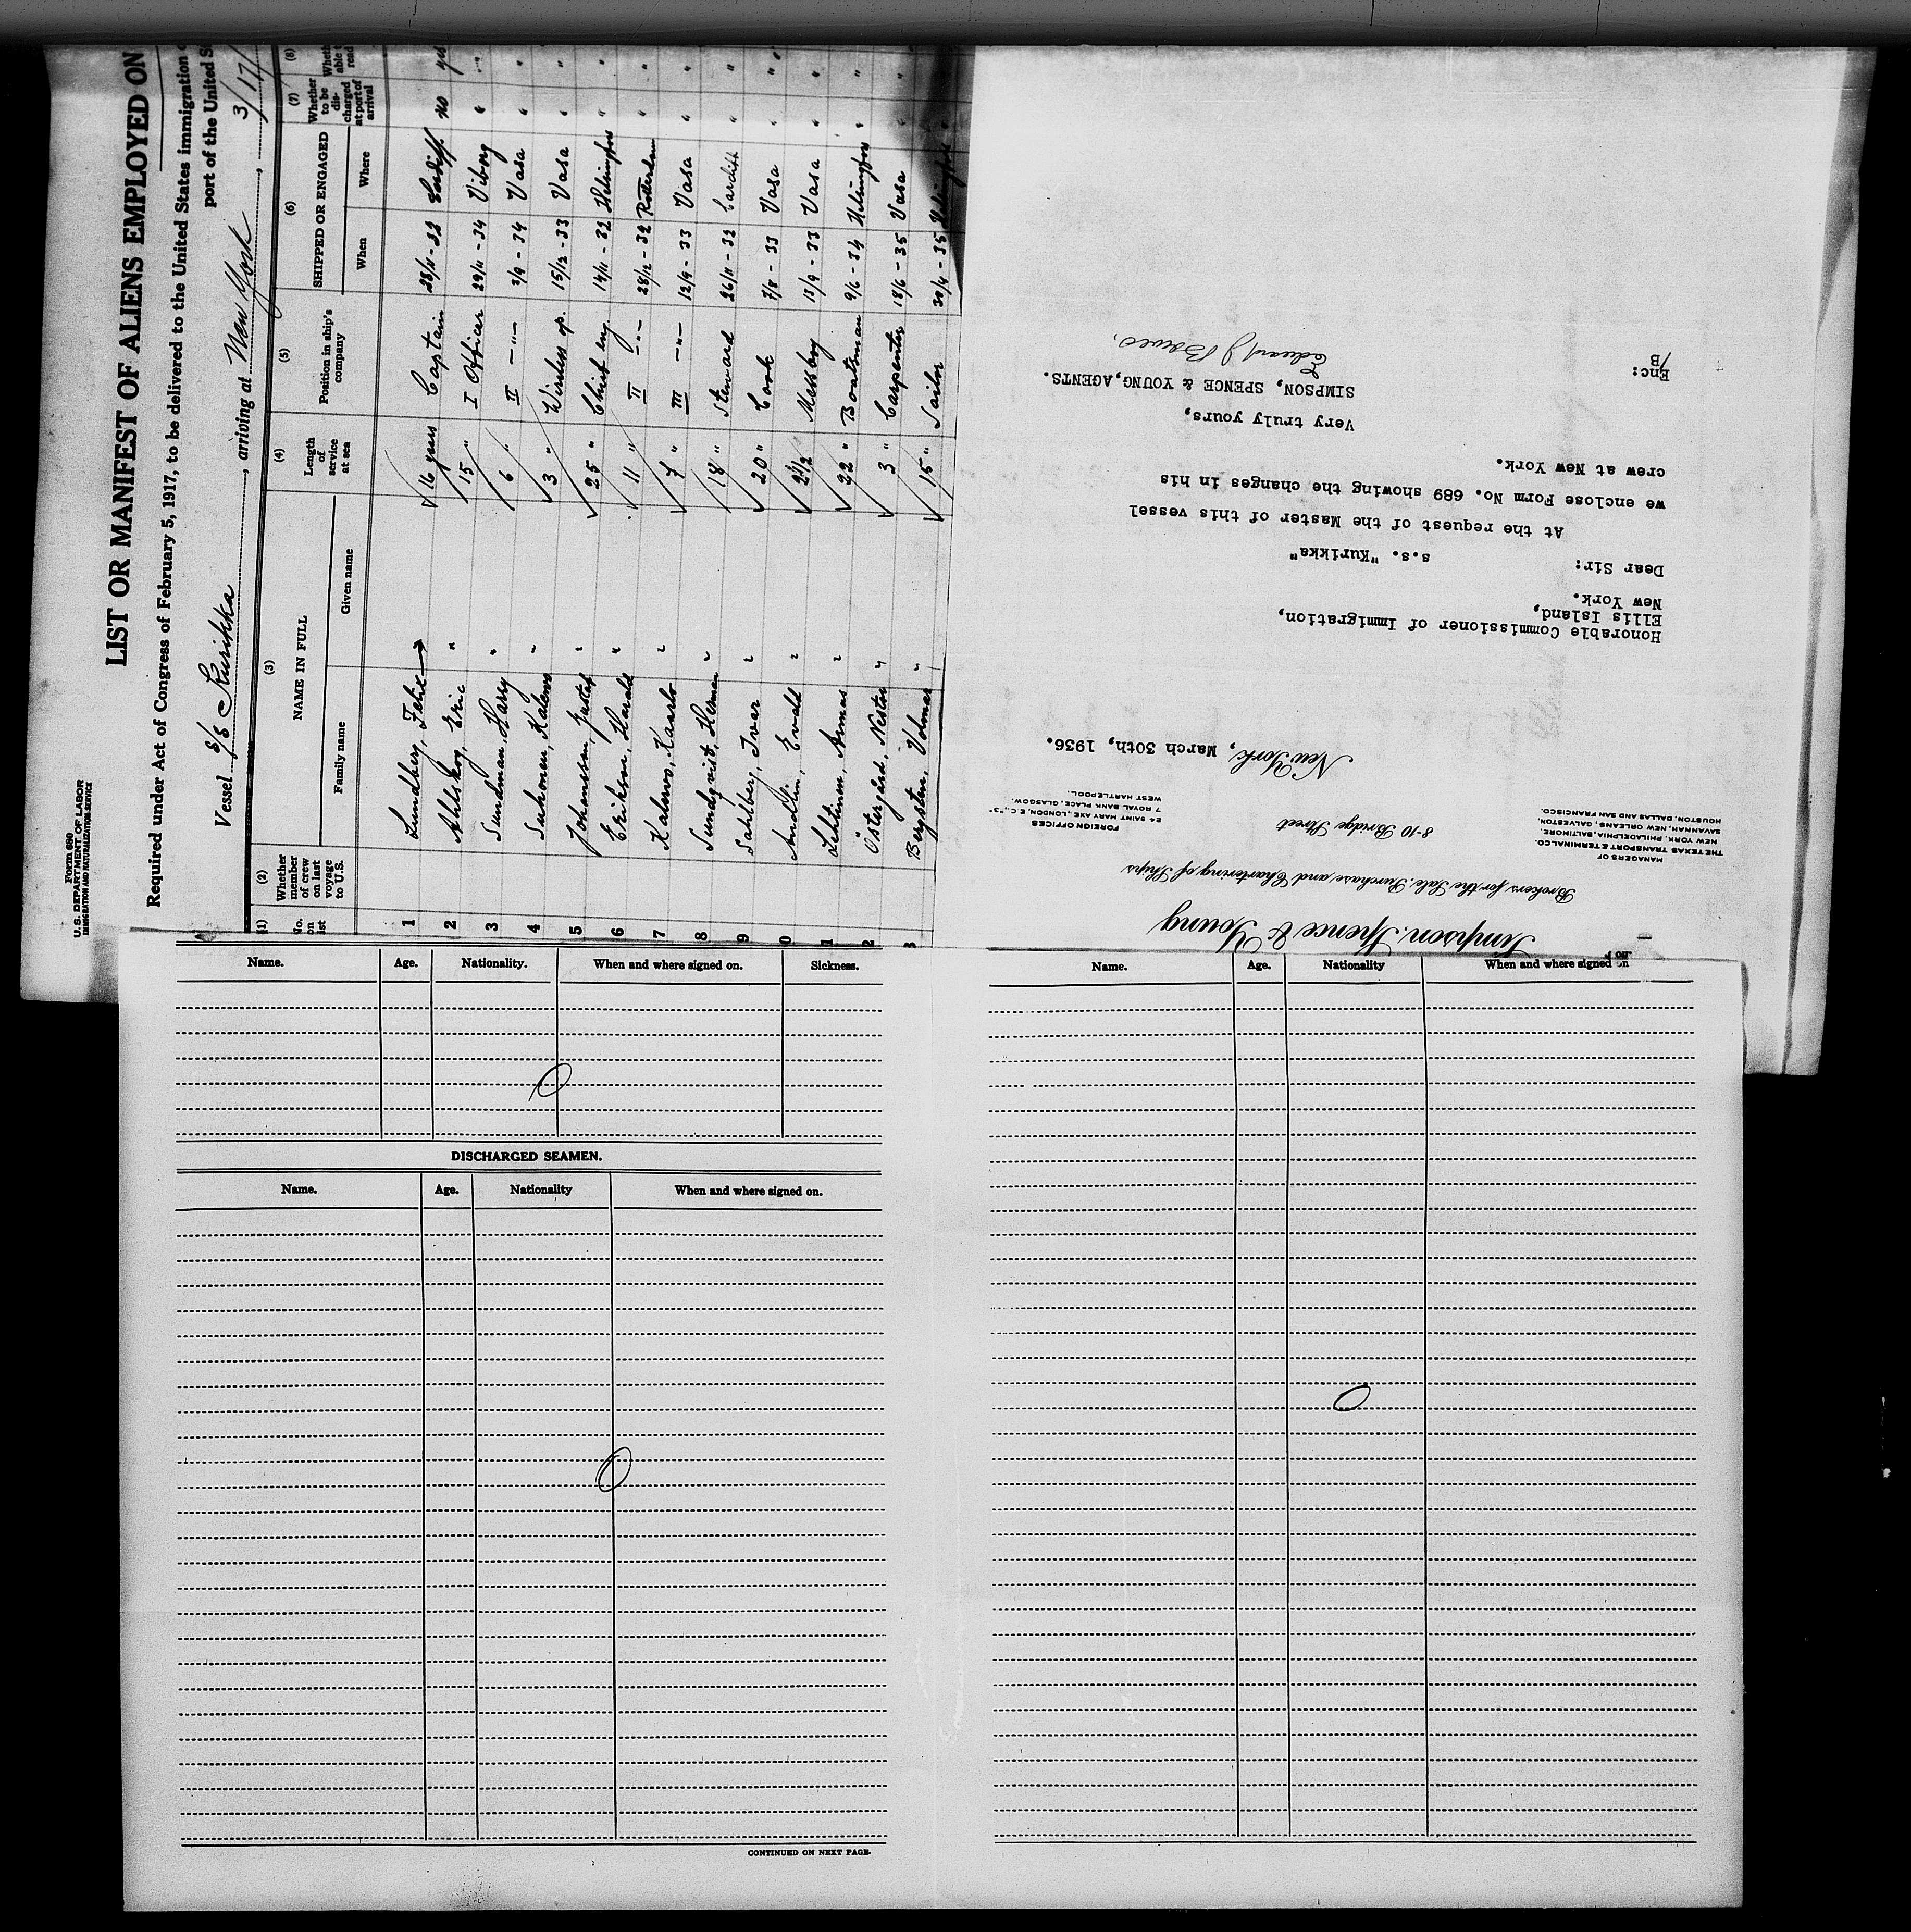 Form 680
U. S. DEPARTMENT OF LABOR
IMMIGRATION AND NATURALIZATION SERVICE
LIST OR MANIFEST OF ALIENS EMPLOYED ON
Required under Act of Congress of February 5, 1917, to be delivered to the United States immigration
port of the United
Vessel S/S Kurikka, arriving at New York, 3/17/
(1) (2) (3) (4) (5) (6) (7) (8)
No. on list Whether member of crew on last voyage to U.S. NAME IN FULL Family name Given name Length of service at sea Position in ship's company SHIPPED OR ENGAGED When Where Whether to be discharged at port of arrival Whether able to read
1 Lundberg, Felix 16 years Captain 28/11-32 Cardiff no yes
2 Ahlskog, Eric " 15 " I Officer 29/11-34 Viborg " "
3 Sundman, Harry " 6 " II -"- 2/9-34 Vasa " "
4 Suhonen, Kalervo " 3 " Wireless op. 15/12-33 Vasa " "
5 Johansson, Gustaf " 25 " Chief eng. 14/11-32 Helsingfors " "
6 Erikson, Harald " 11 " II -"- 28/12-32 Rotterdam " "
7 Kalervo, Kaarlo " 7 " III -"- 12/9-33 Vasa " "
8 Sundqvist, Herman " 18 " Steward 26/11-32 Cardiff " "
9 Sahlberg, Ivar " 20 " Cook 7/8-33 Vasa " "
0 Andlin, Evald " 2 1/2 Messboy 13/9-33 Vasa " "
1 Lehtinen, Armas " 22 " Boatsman 9/6-34 Helsingfors " "
2 Östergård, Nestor " 3 " Carpenter 18/6-35 Vasa " "
3 Bergsten, Volmar " 15 " Sailor 30/4-35 Helsingfors "
Simpson, Spence & Young
Brokers for the Sale, Purchase and Chartering of Ships
MANAGERS OF
THE TEXAS TRANSPORT & TERMINAL CO.
NEW YORK, PHILADELPHIA, BALTIMORE,
SAVANNAH, NEW ORLEANS, GALVESTON,
HOUSTON, DALLAS AND SAN FRANCISCO.
8-10 Bridge Street
FOREIGN OFFICES
24 SAINT MARY AXE, LONDON, E.C., "3"
7 ROYAL BANK PLACE, GLASGOW.
WEST HARTLEPOOL.
New York, March 30th, 1936.
Honorable Commissioner of Immigration,
Ellis Island,
New York.
Dear Sir: s.s. "Kurikka"
At the request of the Master of this vessel
we enclose Form No. 689 showing the changes in his
crew at New York.
Very truly yours,
SIMPSON, SPENCE & YOUNG, AGENTS.
Edward J Bowes,
Enc:
/B
Name. Age. Nationality. When and where signed on. Sickness.
DISCHARGED SEAMEN.
Name. Age. Nationality When and where signed on.
CONTINUED ON NEXT PAGE.
Name. Age. Nationality When and where signed on